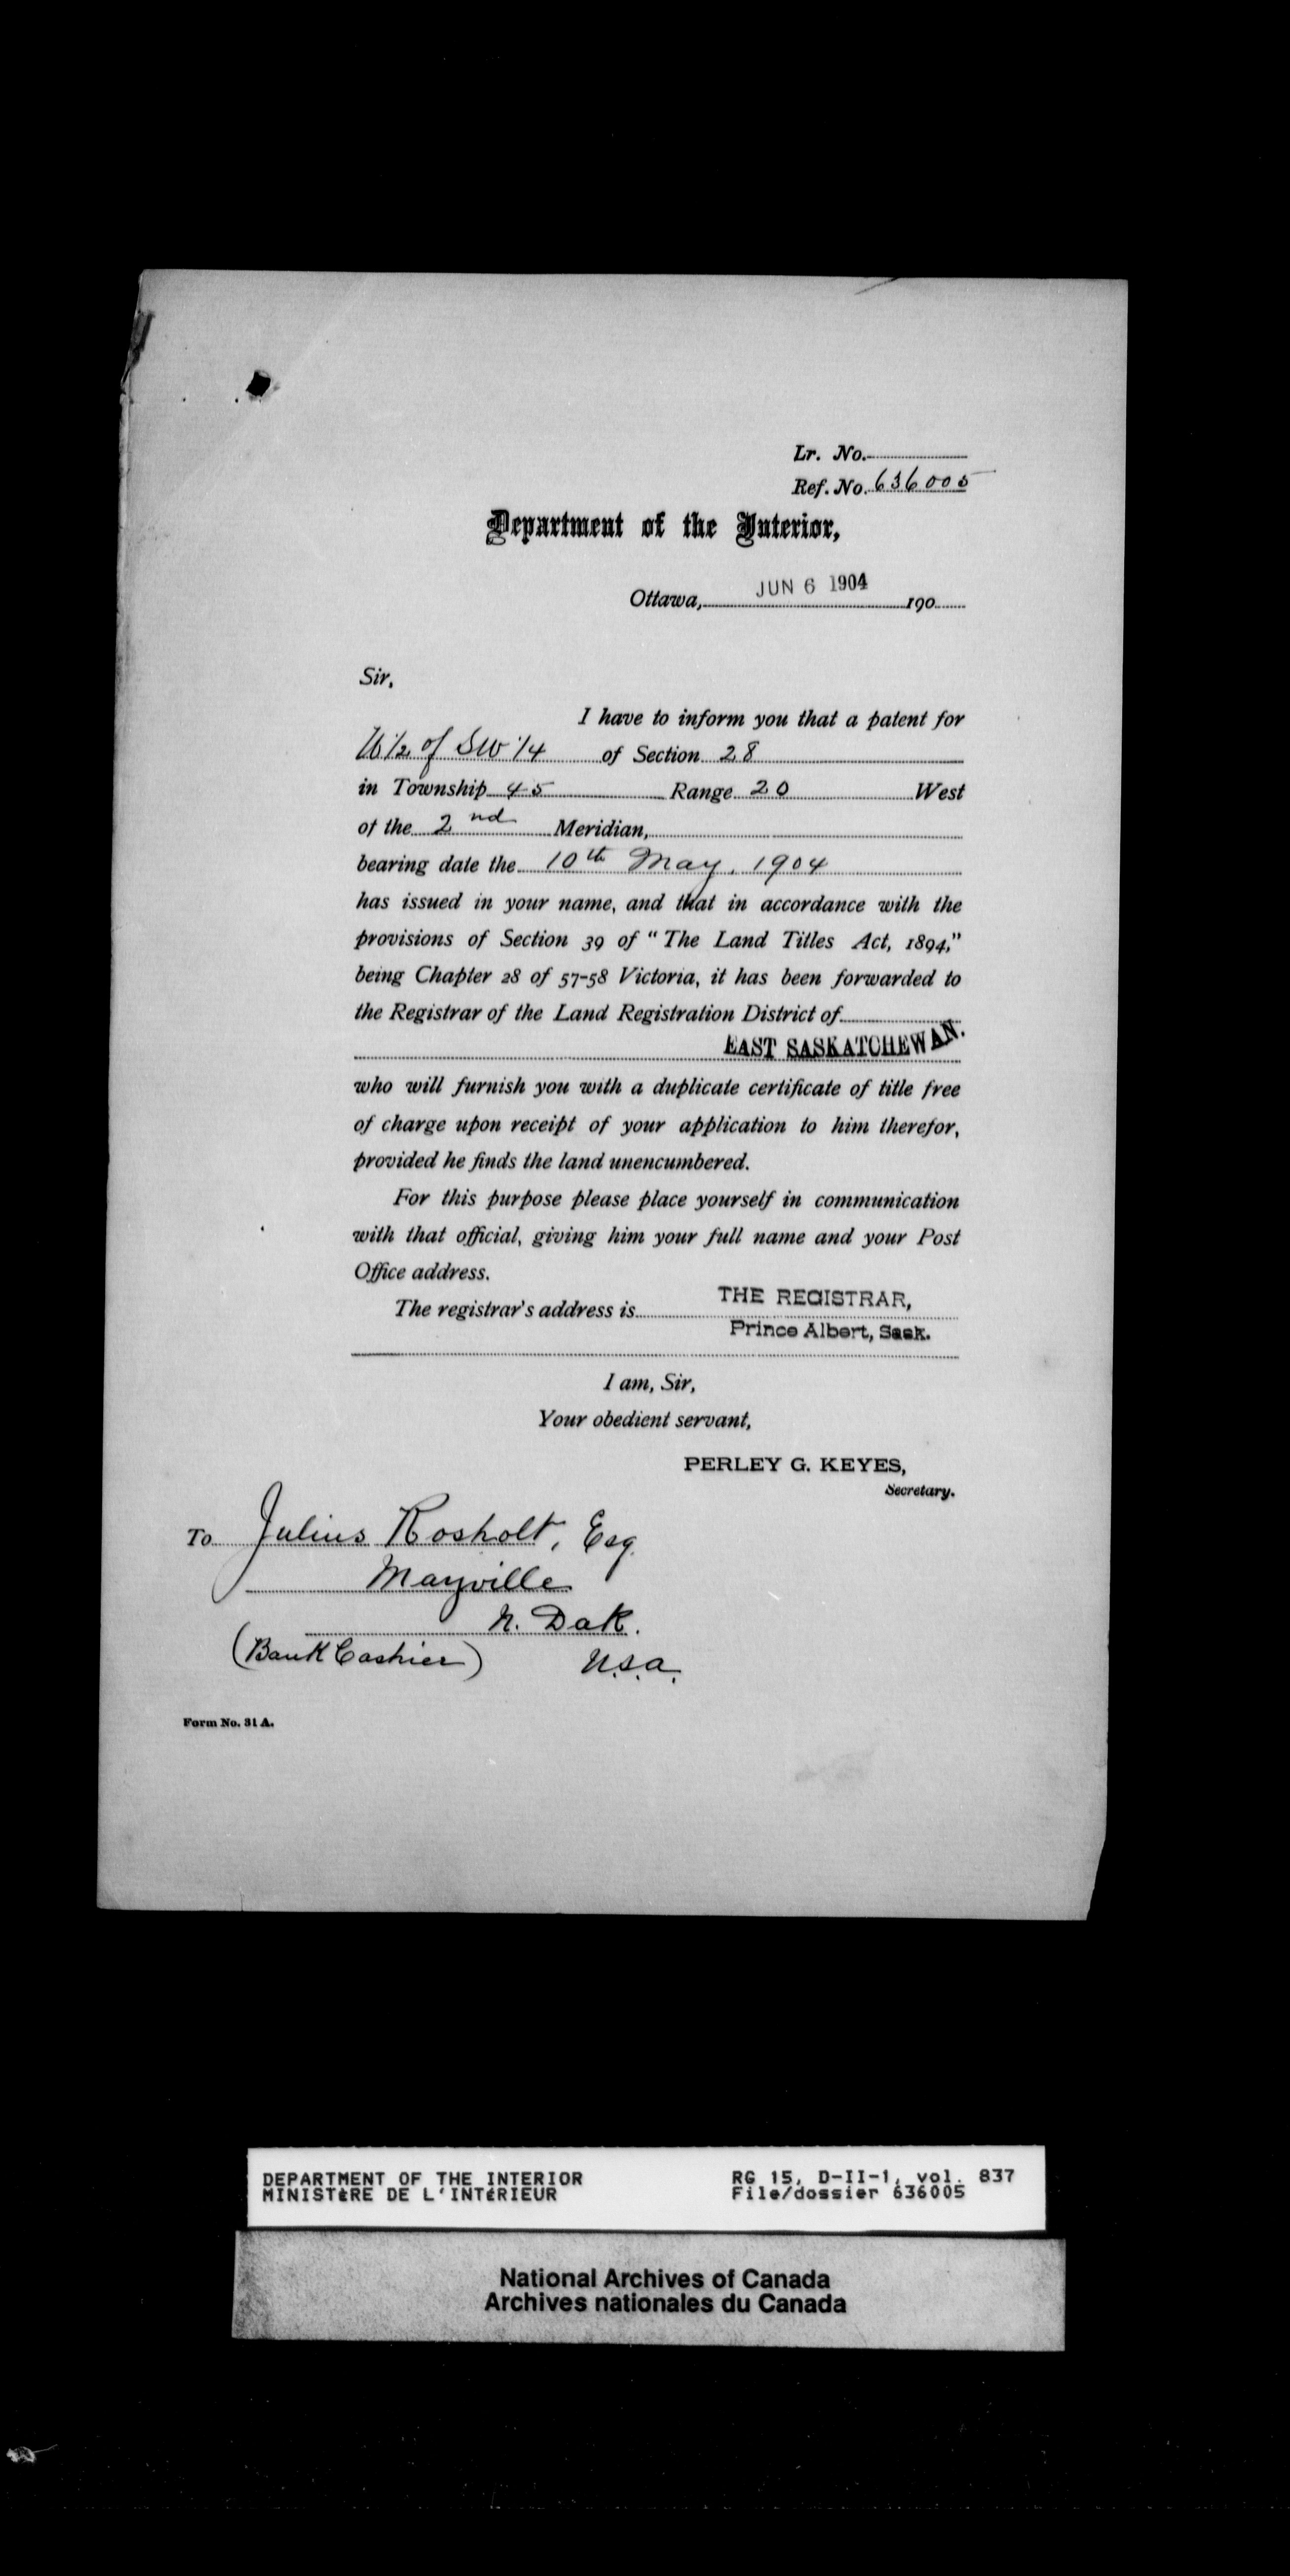 Lr. No.
Ref. No. 636005
Department of the Interior,
JUN 6 1904
Ottawa, 190
Sir,
I have to inform you that a patent for
½ of SW ¼ of Section 28
in Township 45 Range 20 West
of the 2nd Meridian,
bearing date the 10th May, 1904
has issued in your name, and that in accordance with the
provisions of Section 39 of "The Land Titles Act, 1894,"
being Chapter 28 of 57-58 Victoria, it has been forwarded to
the Registrar of the Land Registration District of
EAST SASKATCHEWAN.
who will furnish you with a duplicate certificate of title free
of charge upon receipt of your application to him therefor,
provided he finds the land unencumbered.
For this purpose please place yourself in communication
with that official, giving him your full name and your Post
Office address.
THE REGISTRAR,
The registrar's address is
Prince Albert, Sask.
I am, Sir,
Your obedient servant,
PERLEY G. KEYES,
Secretary.
To Julius Rosholt, Esq.
Mayville
N. Dak.
(Bank Cashier) U.S.A.
Form No. 31 A.
DEPARTMENT OF THE INTERIOR RG 15, D-II-1, vol. 837
MINISTèRE DE L'INTéRIEUR File/dossier 636005
National Archives of Canada
Archives nationales du Canada